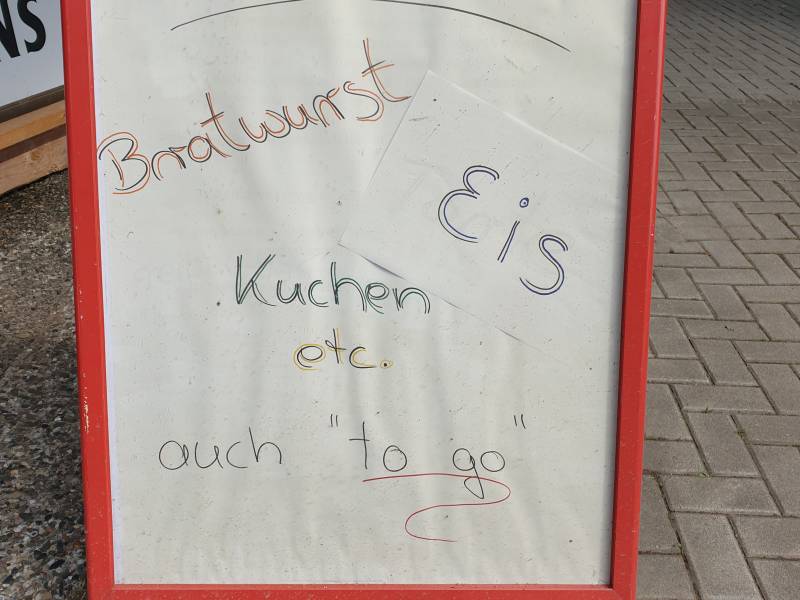 NS
Bratwurst
Eis
Kuchen
etc.
auch "to go"